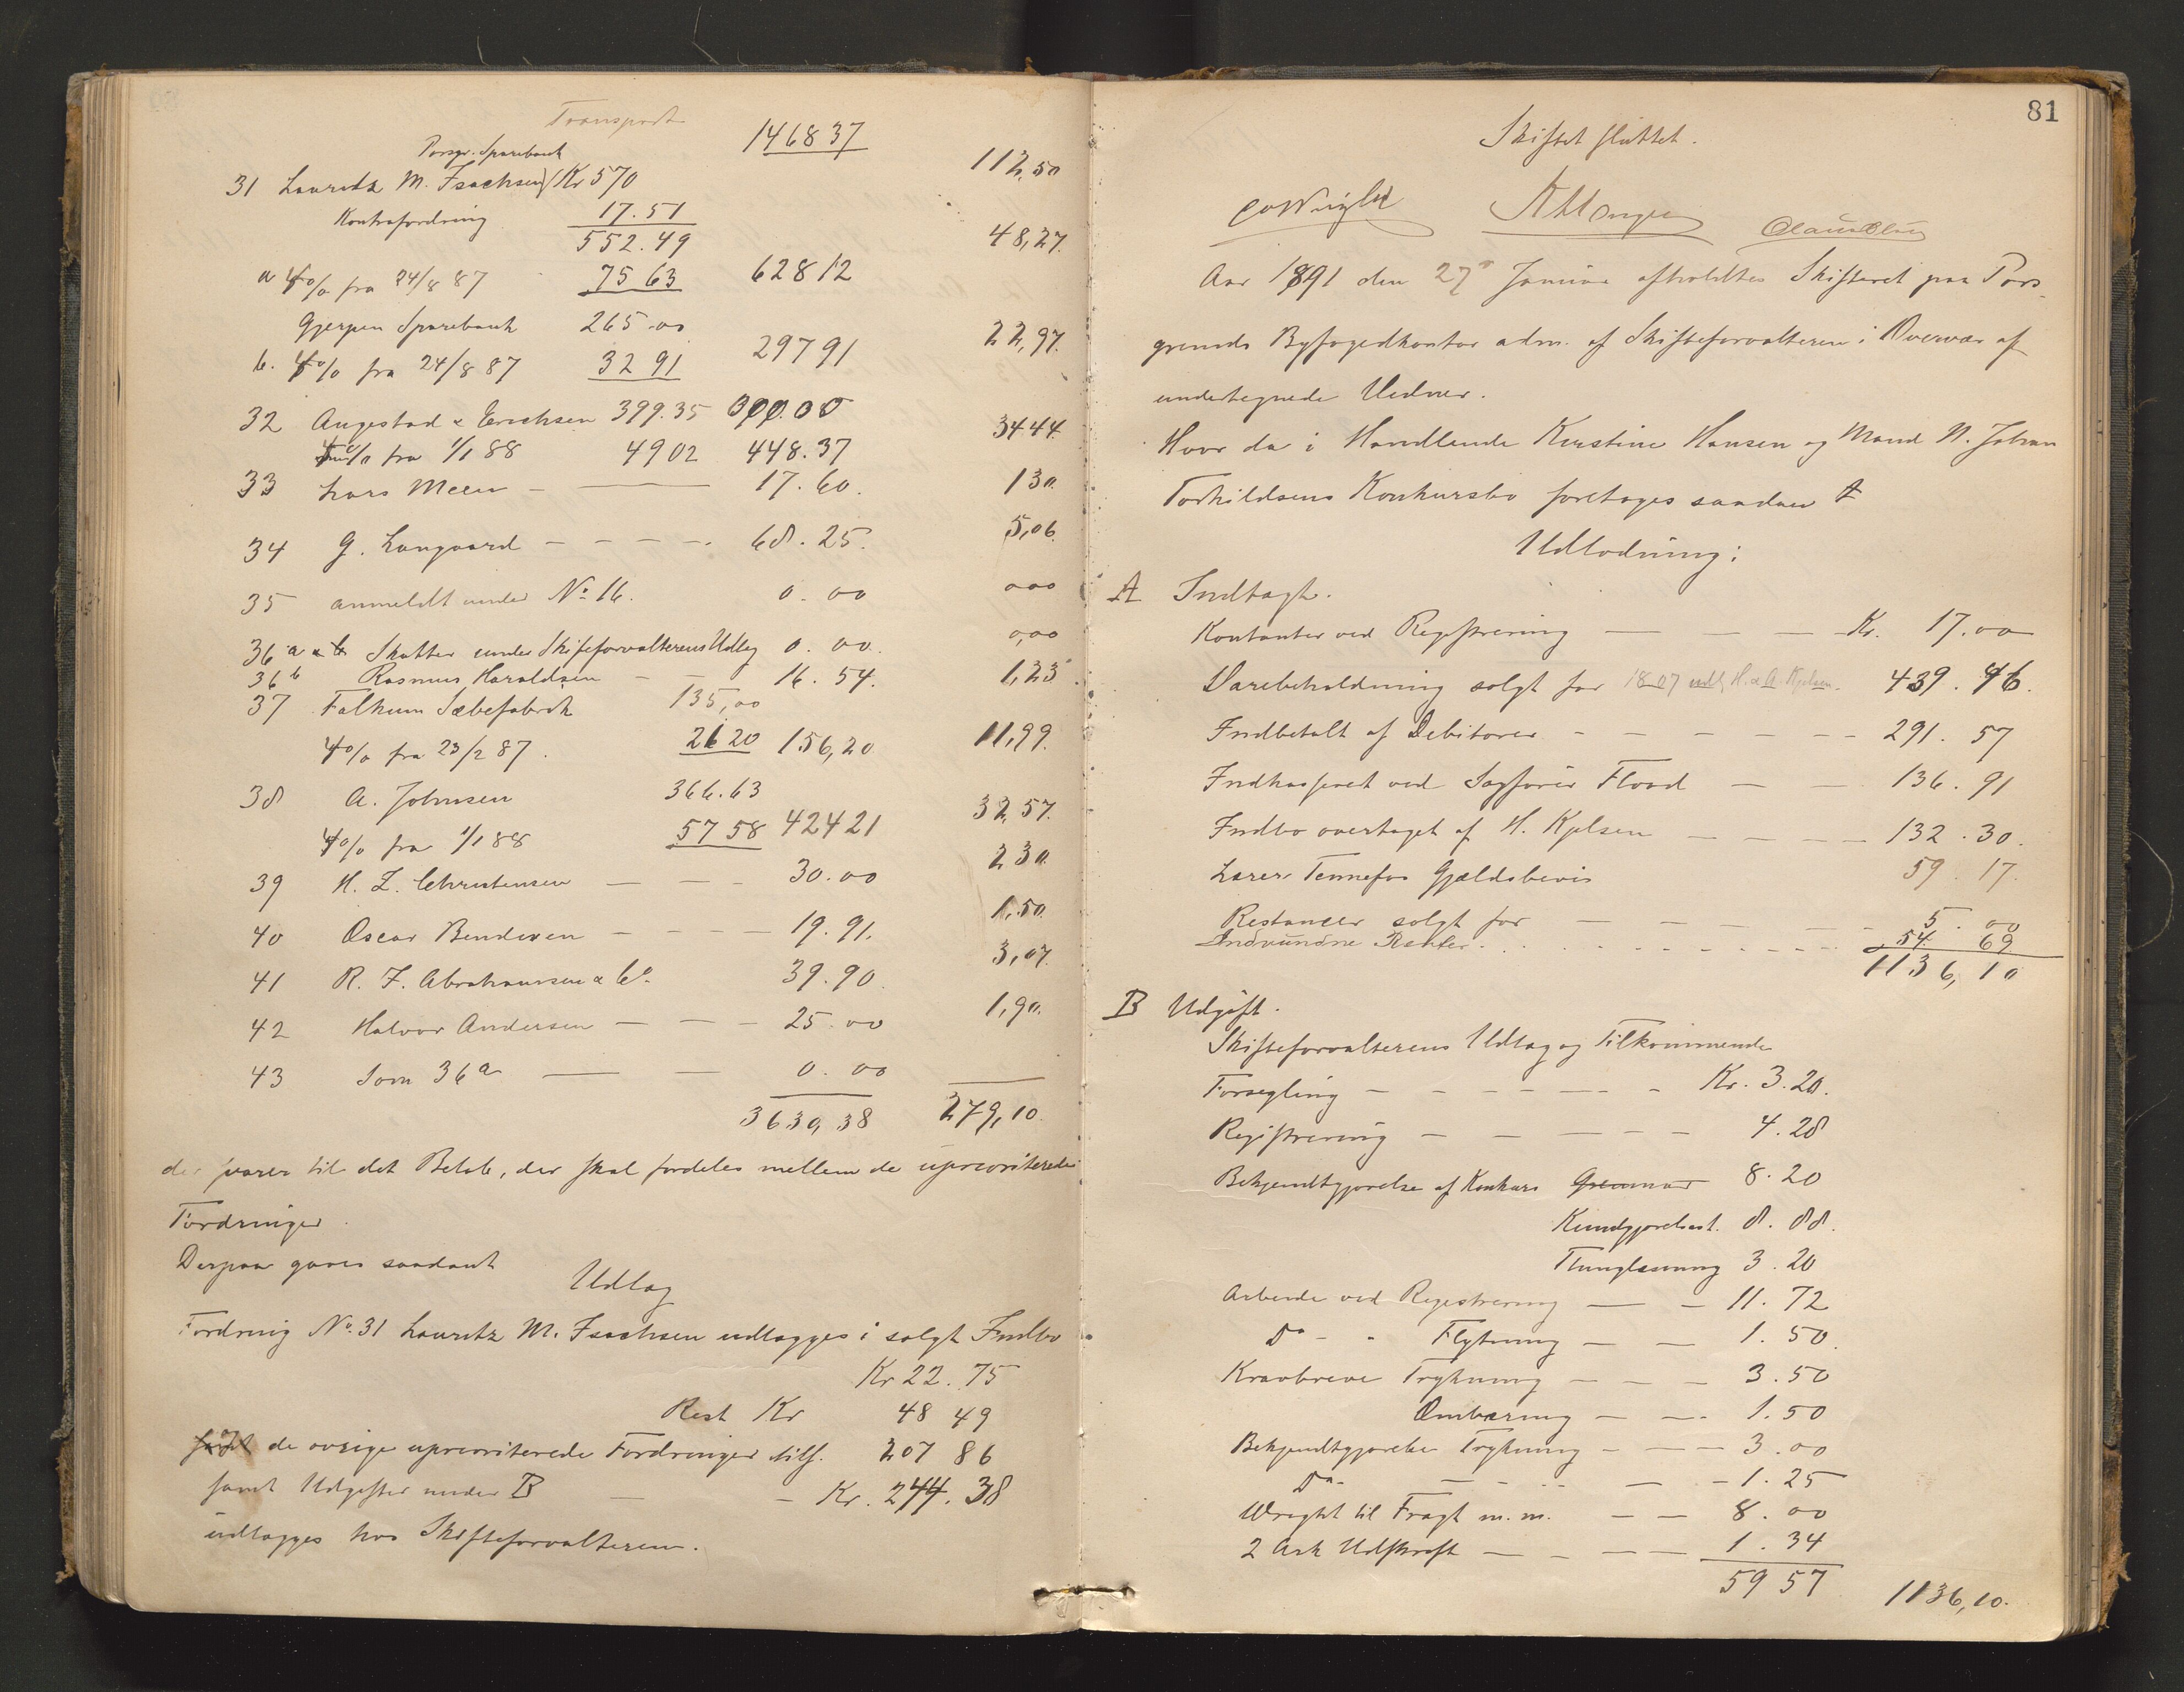 Transport
1468 37
112,50
Porsgr. Sparebank
31 Lauritz M. Isachsen Kr 570
Kontrafordring 17.51
552.49 48,27.
a 4% fra 24/8 87 75 63 628 12
Gjerpen Sparebank 265.00
b. 4% fra 24/8 87 32 91 297 91 22,97.
32 Augestad & Erichsen 399.35 000.00
4% fra 1/1 88 49 02 448.37 34 44
33 Lars Meen — 17.60. 1 30.
34 G. Langaard - - - - 68.25. 5,06.
35 anmeldt under No 16. 0.00 000
36 a & b Skatter under Skifteforvalterens Udlæg 0.00. 0,00
36 b Rasmus Haraldsen — — 16.54. 1,23.
37 Falkum Sæbefabrik 135,00
4% fra 23/2 87. 21 20 156,20 11,99.
38 A. Johnsen 366.63
4% fra 1/1 88 57 58 424 21 32,57.
39 H. L. Christensen — — - 30.00 2 30.
40 Oscar Bendixen - - - — 19.91. 1,50.
41 R. F. Abrahamsen & Co. 39.90. 3,07.
42 Halvor Andersen — — - 25.00 1,90.
43 Som 36 a — — 0.00
3630,38 279,10.
der svarer til det Beløb, der skal fordeles mellem de uprioriterede
Fordringer.
Derpaa gaves saadant
Udlæg
Fordring No. 31 Lauritz M. Isachsen udlægges i solgt Indbo
Kr 22.75
Rest Kr 48 49
de øvrige uprioriterede Fordringer tils. 207 86
samt Udgifter under B — - Kr. 244.38
udlægges hos Skifteforvalteren.
81
Skiftet sluttet.
Aar 1891 den 27de Januar afholdtes Skifteret paa Pors-
grunds Byfogedkontor adm. af Skifteforvalteren i Overvær af
undertegnede Vidner.
Hvor da i Handlende Kirstine Hansen og Mand N. Johan
Torkildsens Konkursbo foretages saadan
Udlodning:
A Indtægt.
Kontanter ved Registrering — — — Kr. 17.00
Varebeholdning solgt for 18 07 udl. H. & A. Kjølsen. 439.46.
Indbetalt af Debitorer - - - - - - 291.57
Indkasseret ved Sagfører Flood — — 136.91
Indbo overtaget af H. Kjølsen — - - — 132.30.
Lærer Tennefos Gjældsbevis 59.17.
Restancer solgt for — — — - 5.00
Indvundne Renter. 54 69
1136,10
B Udgift.
Skifteforvalterens Udlæg og Tilkommende
Forsegling — - - - — - Kr. 3.20.
Registrering — — - — — - 4.28
Bekjendtgjørelse af Konkurs Grenmar 8.20
Kundgjørelsest. 8.88.
Thinglæsning 3.20
Arbeide ved Registrering — - 11.72
Do - " Flytning — — 1.50.
Kravbreve Trykning — - — 3.50
Ombæring — —. 1.50
Bekjendtgjørelse Trykning - — — 3.00
Do - — - .. — - 1.25
Wright til Fragt m.m. — — 8.00
2 Ark Udskrift — - — — 1.34
59 57 1136,10.